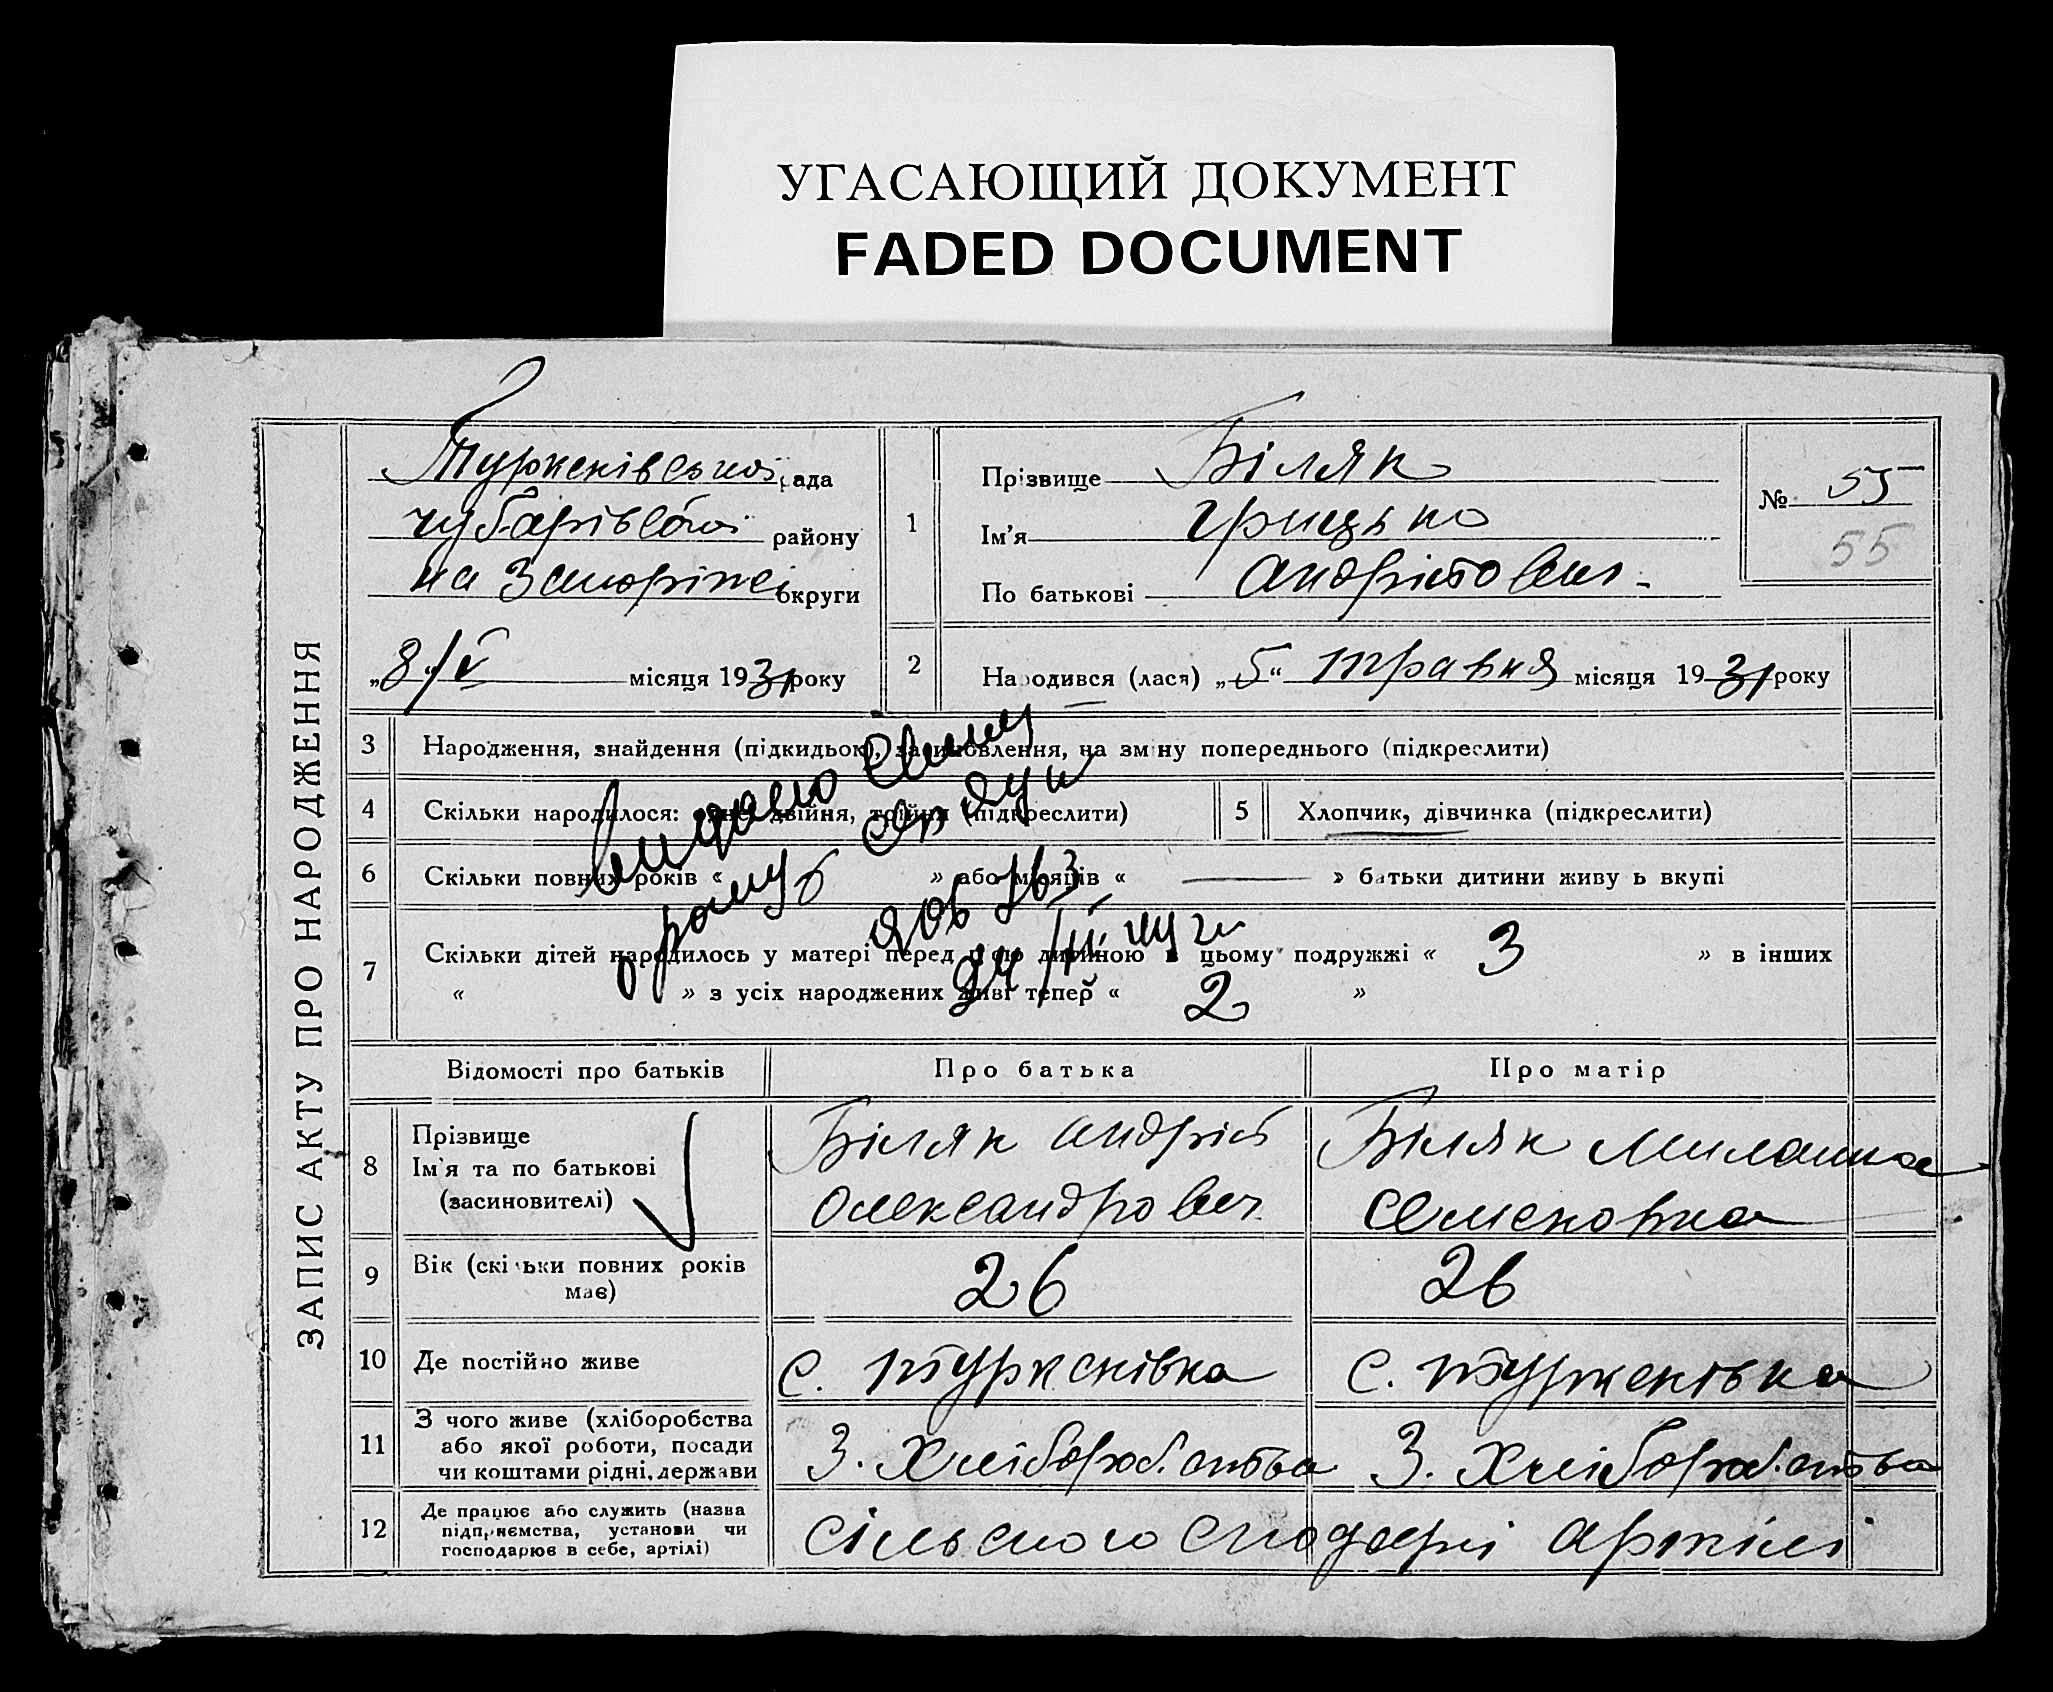 УГАСАЮЩИЙ ДОКУМЕНТ
FADED DOCUMENT
ЗАПИС АКТУ ПРО НАРОДЖЕННЯ
Туркенівської рада
району
на Запоріжжі округи
„8“/V місяця 1931 року
1
Прізвище Біляк
Ім’я Грицько
По батькові Андрієтович
№ 55
55
2
Народився (лася) „5“ травня місяця 1931 року
3 Народження, знайдення (підкидьок), засиновлення, на зміну попереднього (підкреслити)
4 Скільки народилося: одне, двійня, трійня (підкреслити)
5 Хлопчик, дівчинка (підкреслити)
6 Скільки повних років « » або місяців « — » батьки дитини живуть вкупі
7 Скільки дітей народилось у матері перед цією дитиною в цьому подружжі « 3 » в інших
« » з усіх народжених живі тепер « 2 »
Відомості про батьків
Про батька
Про матір
8 Прізвище
Ім`я та по батькові
(засиновителі)
Біляк Андріє
Олександрович
Біляк Миланка
Семеновна
9 Вік (скільки повних років
має)
26
26
10 Де постійно живе
с. Туркенівка
с. Туркенівка
11 З чого живе (хліборобства
або якої роботи, посади
чи коштами рідні, держави
З. Хлібороб.ства
З. Хлібороб.ства
12 Де працює або служить (назва
підприємства, установи чи
господарює в себе, артілі)
артілі